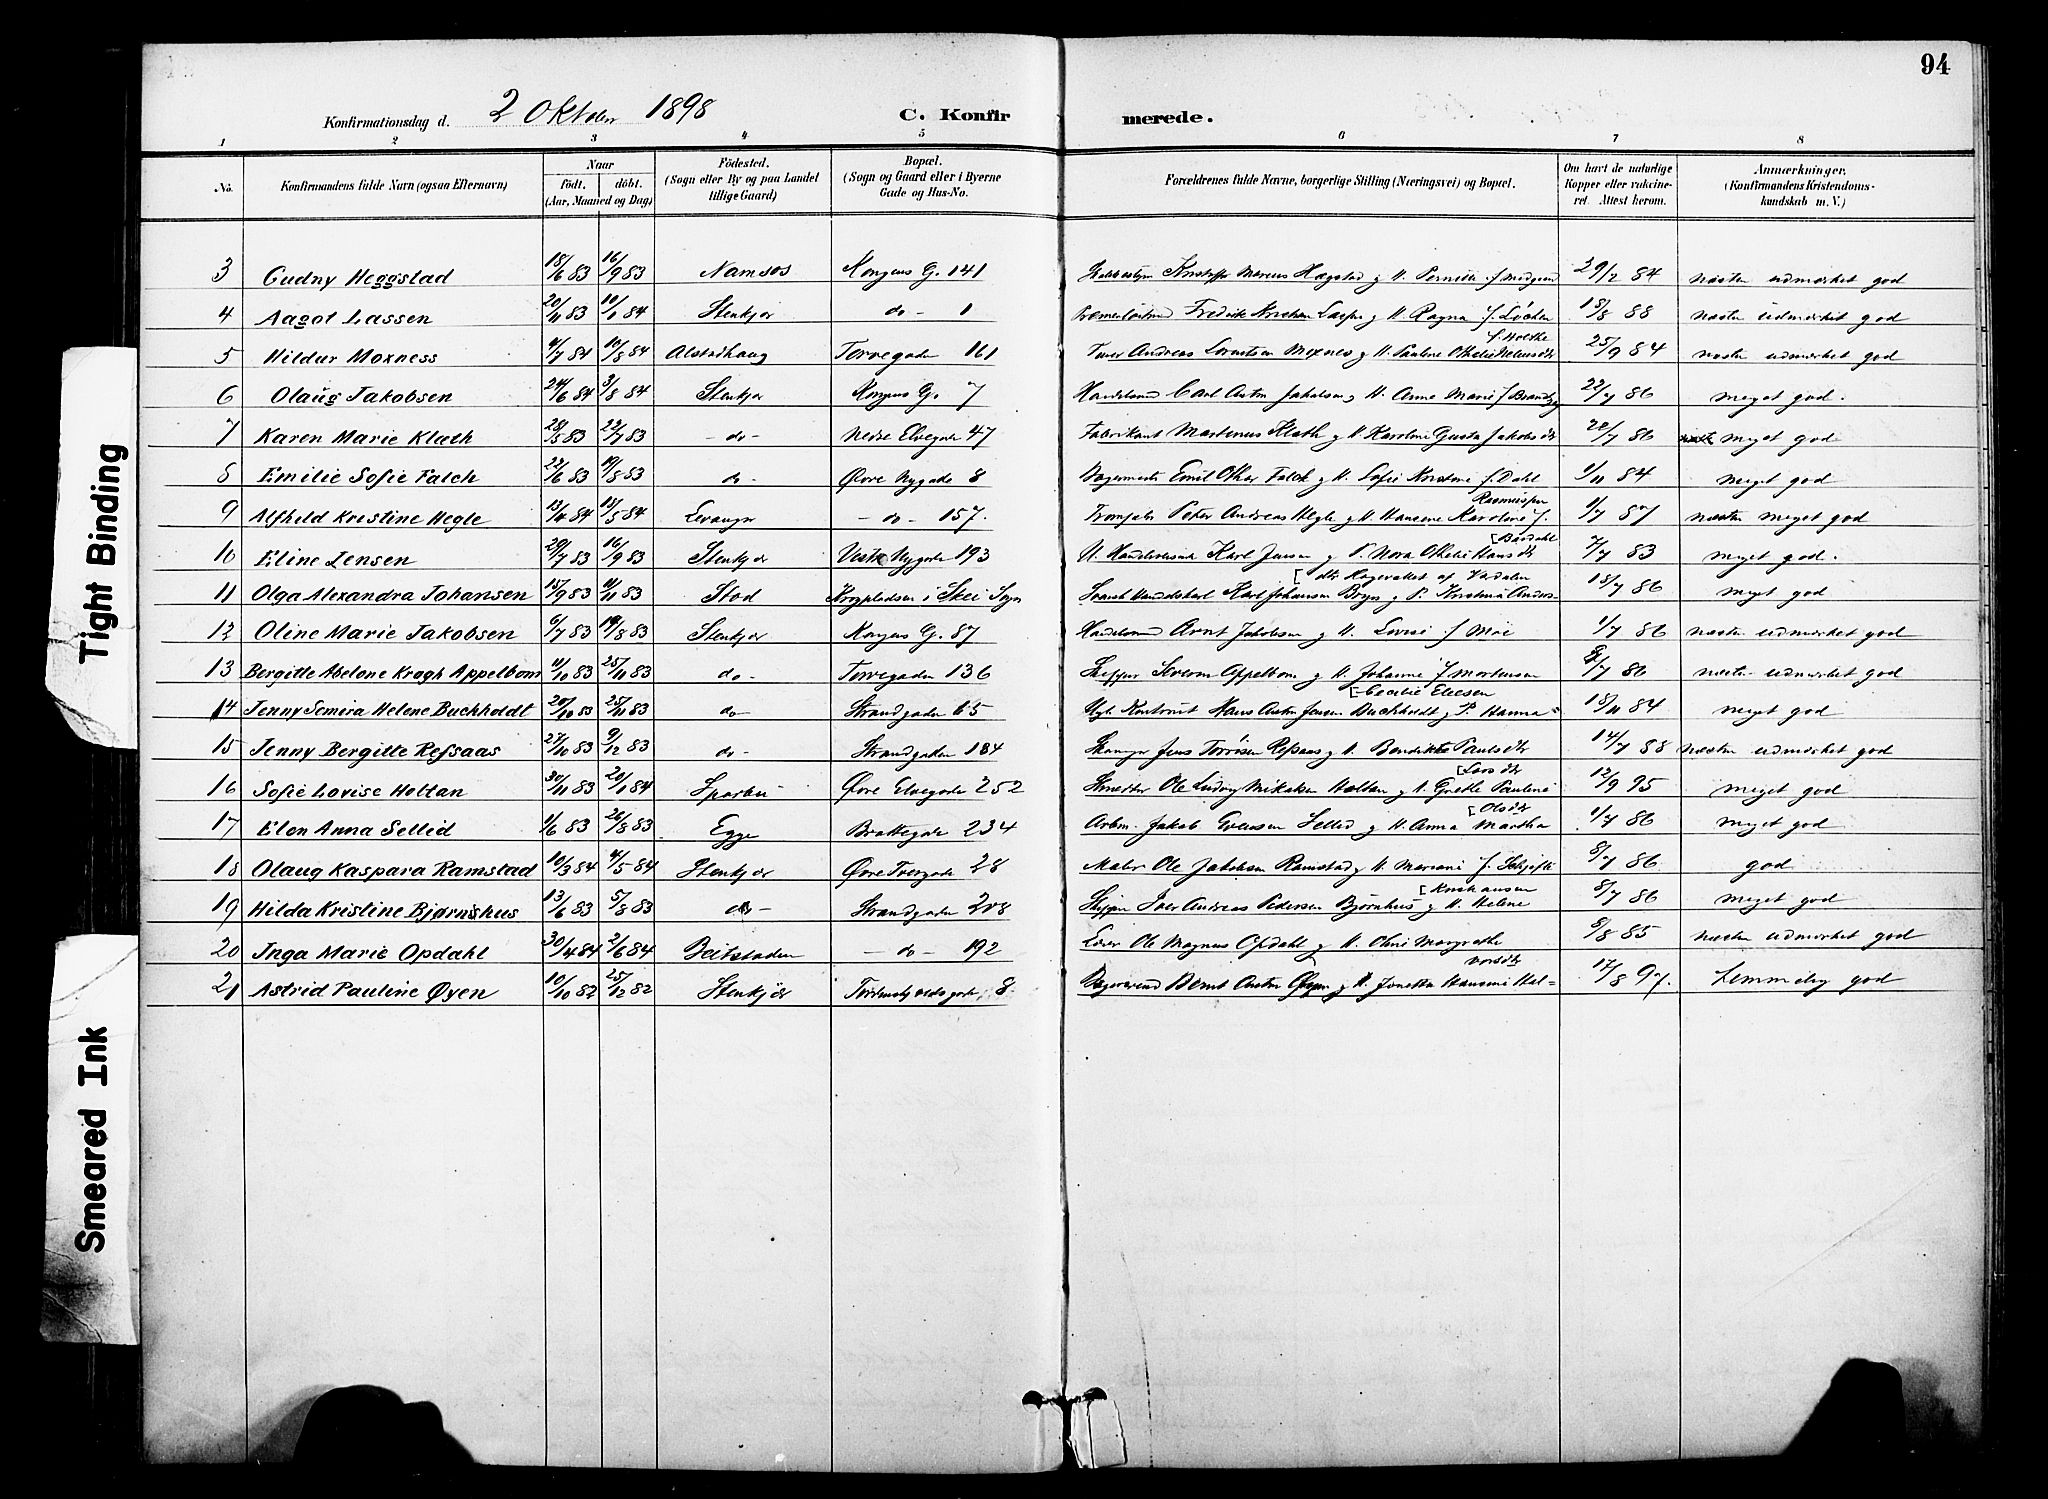 94
Konfirmationsdag d. 2 Oktober 1898 C. Konfirmerede.
1 2 3 4 5 6 7 8
No. Konfirmandens fulde Navn (ogsaa Efternavn) Naar født. døbt. (Aar, Maaned og Dag) Födested. (Sogn eller By og paa Landet tillige Gaard) Bopæl. (Sogn og Gaard eller i Byerne Gade og Hus-No. Forældrenes fulde Navne, borgerlige Stilling (Næringsvei) og Bopæl. Om havt de naturlige Kopper eller vakcineret. Attest herom. Anmærkninger. (Konfirmandens Kristendomskundskab m. V.)
3 Gudny Heggstad 18/6 83 16/9 83 Namsos Kongens G. 141 Kristoffer Marcus Hegstad og H. Pernille f. 29/2 84 næsten udmærket god
4 Aagot Lassen 20/11 83 10/1 84 Stenkjær do 1 Fredrik Kristian og H. Ragna f. Løchen 18/8 88 næsten udmærket god
5 Hildur Moxness 4/7 84 10/8 84 Alstadhaug Torvegaden 161 Andreas Lorntsen Moxnes og H. Pauline Othelie f. Holthe 25/9 84 næsten udmærket god
6 Olaug Jakobsen 24/6 84 3/8 84 Stenkjær Kongens G. 7 Handelsmand Carl Anton Jakobsen og H. Anne Marie f. 22/7 86 meget god.
7 Karen Marie Klath 28/5 83 22/7 83 do Nedre Elvegade 47 Fabrikant Martinus Klath og H Karoline Gusta Jakobsdtr 22/7 86 meget god
8 Emilie Sofie Falch 22/6 83 19/8 83 do Øvre Nygade 8 Bagermester Emil Othar Falck og H. Sofie Kristine f. Dahl 1/11 84 meget god
9 Alfhild Kristine Hegle 13/4 84 18/5 84 Levanger do 157. Peter Andreas Hegle og H. Hansine Karoline f. Rasmussen 1/7 87 næsten meget god
10 Eline Jensen 29/7 83 16/9 83 Stenkjær Vestre Nygade 193 Karl Jensen og P. Nora Othelie Hansdtr [Bardahl 7/7 83 meget god.
11 Olga Alexandra Johansen 15/9 83 11/11 83 Stod i Skei Sogn Karl Johansen og P. Kristine Anders- [dtr af Værdalen 18/7 86 meget god
12 Oline Marie Jakobsen 6/7 83 19/8 83 Stenkjær Kongens G. 87 Handelsmand Arnt Jakobsen og H. Lovise f Moe 1/7 86 næsten udmærket god
13 Bergitte Abelone Kragh Appelbom 11/10 83 25/11 83 do Torvegaden 136 Skipper Severin Appelbom og H Johanne f Mortensen /7 86 næsten udmærket god
14 Jenny Semira Helene Buchholdt 20/10 83 25/11 83 do Strandgaden Hans Anton Jensen Buchholdt og P. Hanna [Cecilie Eliesen 18/11 84 meget god
15 Jenny Bergitte Refsaas 27/10 83 9/12 83 do Strandgaden 184 Jens Refsaas og H. Bendikte Paulsdtr 14/7 88 næsten udmærket god
16 Sofie Lovise Holtan 30/11 83 20/1 84 Sparbu Øvre Elvegade 252 Ole Ludvig Mikalsen Holtan og H. Grethe Pauline [Larsdtr 12/9 95 meget god
17 Elen Anna Sellid 1/6 83 26/8 83 Egge Brattegade 234 Arbm. Jakob Sellid og H. Anna Martha [Olsdtr 1/7 86 meget god
18 Olaug Kaspara Ramstad 10/3 84 4/5 84 Stenkjær Øvre Tvergade 28 Maler Ole Jakobsen Ramstad og H Mariane f. 8/7 86 god
19 Hilda Kristine Bjørnshus 13/6 83 5/8 83 do Strandgaden 208 Skipper Iver Andreas Pedersen Bjørnhus og H. Helene [Kristiansen 8/7 86 meget god
20 Inga Marie Opdahl 30/4 84 2/6 84 Beitstaden do 192 Lærer Ole Magnus Opdahl og H. Oline Margrethe 5/8 85 næsten udmærket god
21 Astrid Pauline Øyen 10/10 82 25/12 82 Stenkjær 8. Bernt Anton Øyen og H. Jonetta Hansine Hal- vorsdtr 17/8 97. temmelig god
Tight Binding
Smeared Ink